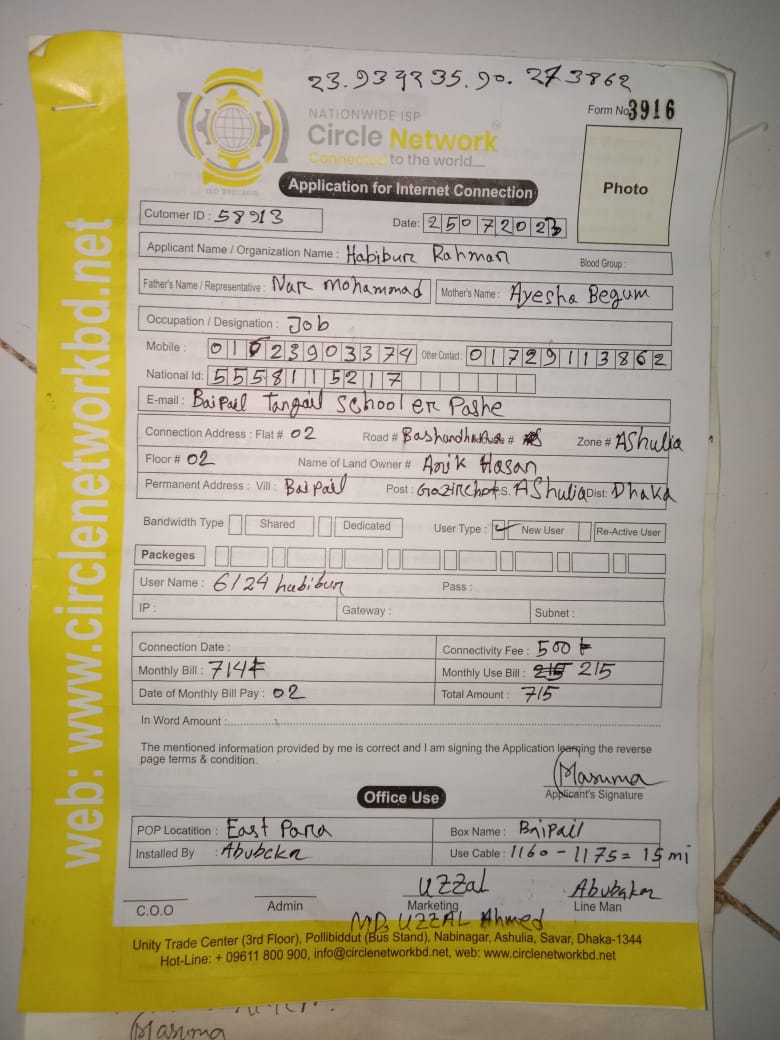 23.939235.90.273862
NATIONWIDE ISP
Circle Network
Connected to the world.....
ISO 9001:2015
Form No 3916
Photo
Application for Internet Connection
Cutomer ID : 58913
Date: 25072023
Applicant Name / Organization Name : Habibur Rahman Blood Group :
Father's Name / Representative : Nur Mohammad Mother's Name : Ayesha Begum
Occupation / Designation : Job
Mobile : 01623903374 Other Contact : 01729113862
National Id: 5558115217
E-mail : Baipail Tangail School er Pashe
Connection Address : Flat # 02 Road # # Zone # AShulia
Floor # 02 Name of Land Owner # Anik Hasan
Permanent Address : Vill : Baipail Post : Gazirchot AShulia Dist: Dhaka
Bandwidth Type Shared Dedicated User Type : New User Re-Active User
Packeges
User Name : 6124 habibur Pass :
IP : Gateway : Subnet :
Connection Date : Connectivity Fee : 500 ৳
Monthly Bill : 714৳ Monthly Use Bill : 215 215
Date of Monthly Bill Pay : 02 Total Amount : 715
In Word Amount :
The mentioned information provided by me is correct and I am signing the Application learning the reverse
page terms & condition.
Masuma
Applicant's Signature
Office Use
POP Locatition : East Para Box Name : Baipail
Installed By : Abubakar Use Cable : 1160 - 1175 = 15 mi
UZZal Abubakar
C.O.O Admin Marketing Line Man
MD. UZZAL Ahmed
Unity Trade Center (3rd Floor), Pollibiddut (Bus Stand), Nabinagar, Ashulia, Savar, Dhaka-1344
Hot-Line: + 09611 800 900, info@circlenetworkbd.net, web: www.circlenetworkbd.net
web: www.circlenetworkbd.net
Masuma